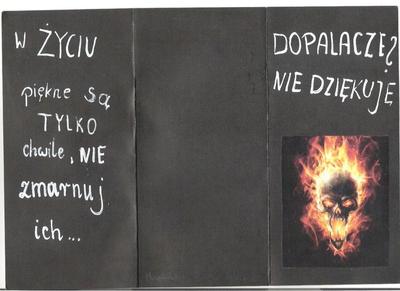 W ŻYCIU
piękne są
TYLKO
chwile, NIE
zmarnuj
ich...
DOPALACZE?
NIE DZIĘKUJĘ